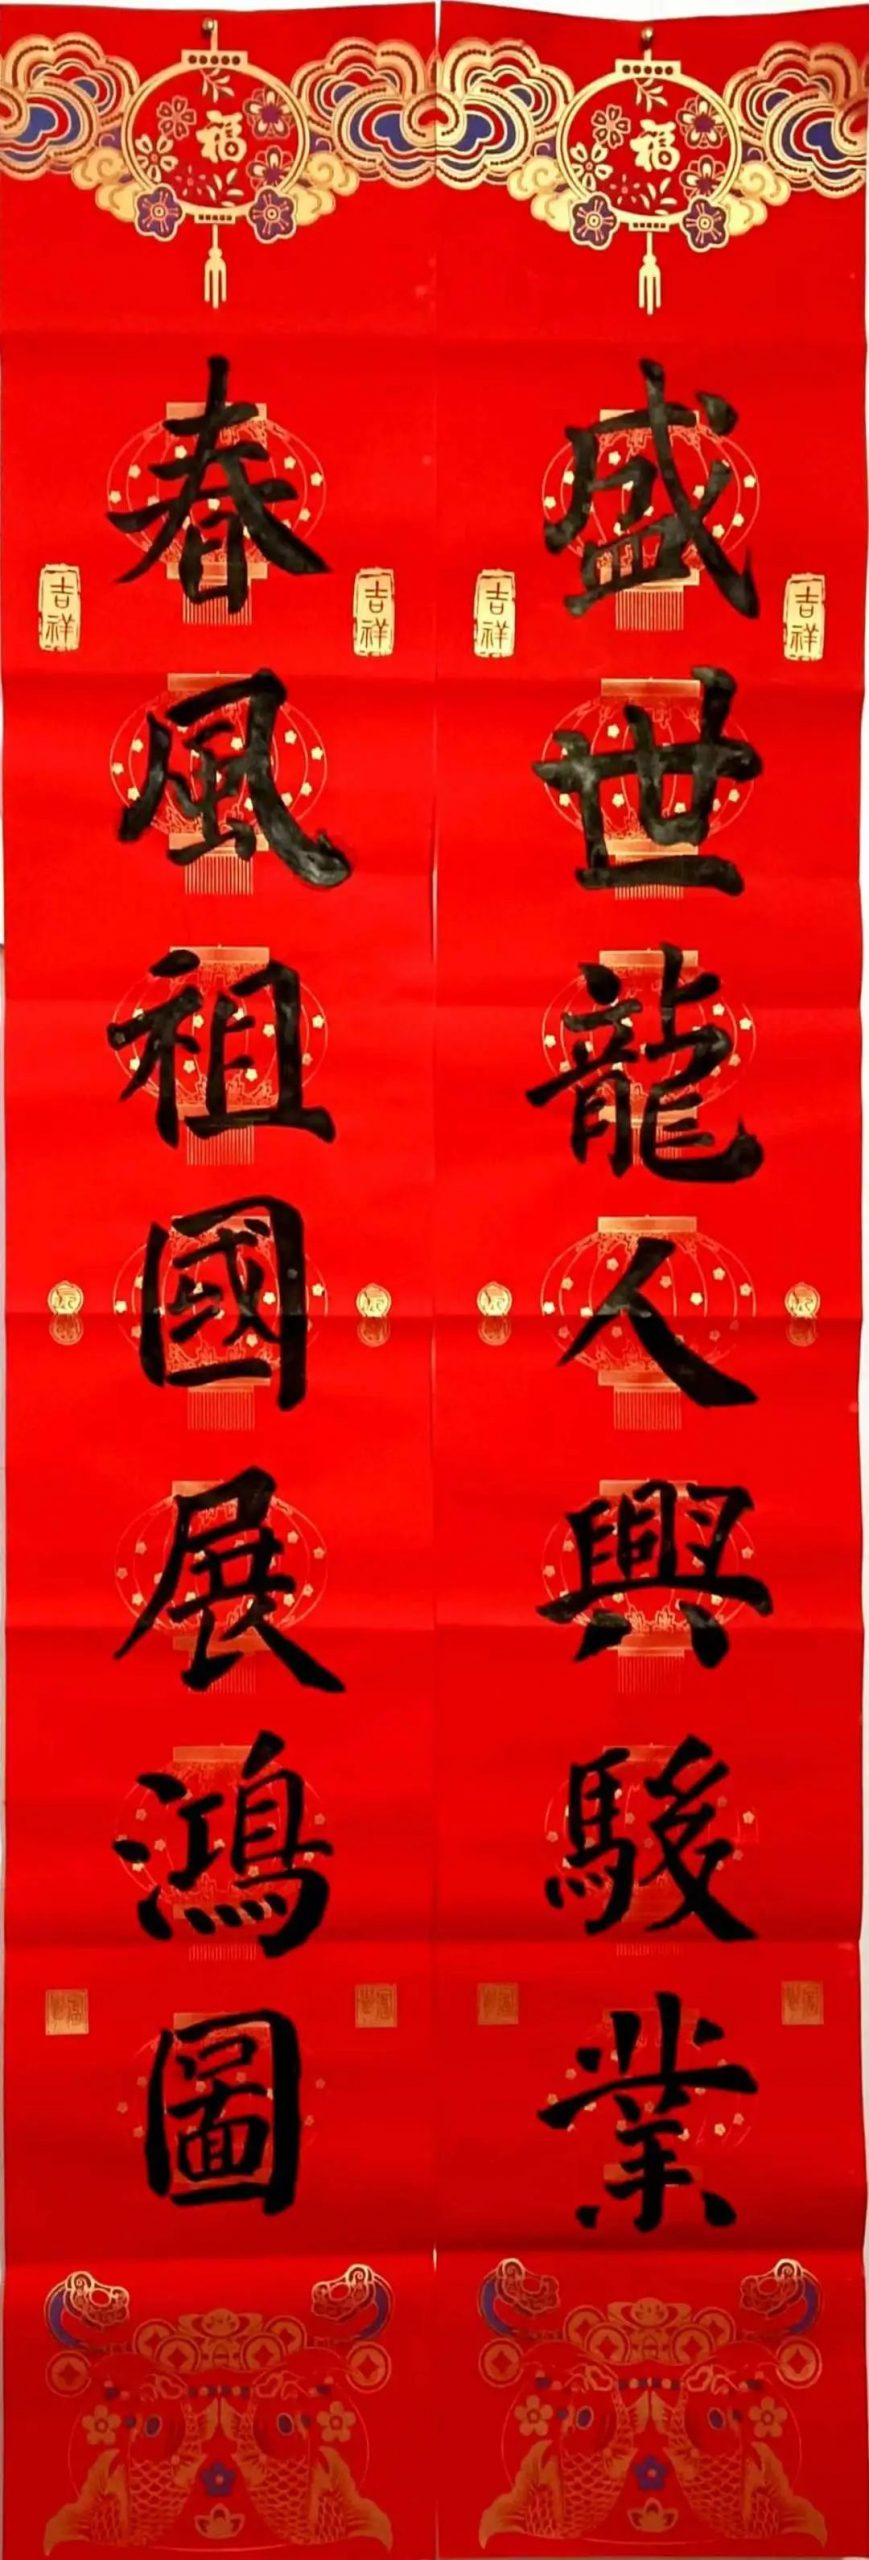 福
福
盛世龍人興駿業
春風祖國展鴻圖
吉祥
吉祥
吉祥
吉祥